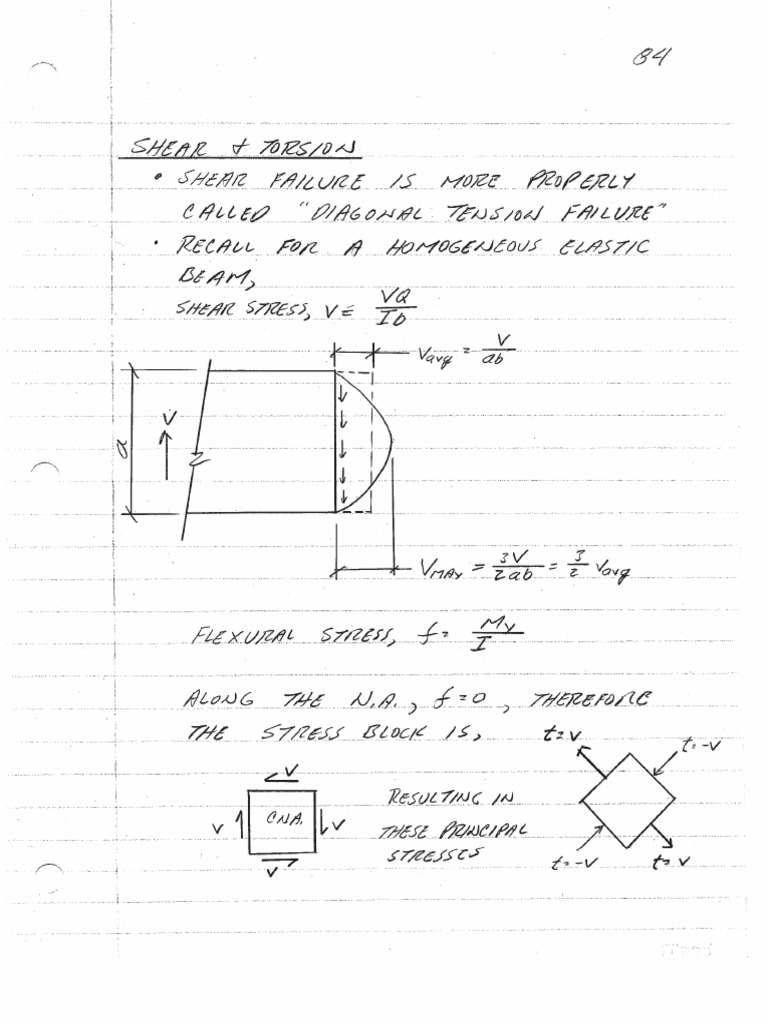 84
SHEAR & TORSION
• SHEAR FAILURE IS MORE PROPERLY
CALLED "DIAGONAL TENSION FAILURE"
• RECALL FOR A HOMOGENEOUS ELASTIC
BEAM,
SHEAR STRESS, v = VQ/Ib
vavg = V/ab
a
V
VMAX = 3V/2ab = 3/2 vavg
FLEXURAL STRESS, f = My/I
ALONG THE N.A., f=0, THEREFORE
THE STRESS BLOCK IS,
t=v
t=-v
v
v
@N.A.
v
v
RESULTING IN
THESE PRINCIPAL
STRESSES
t=-v
t=v